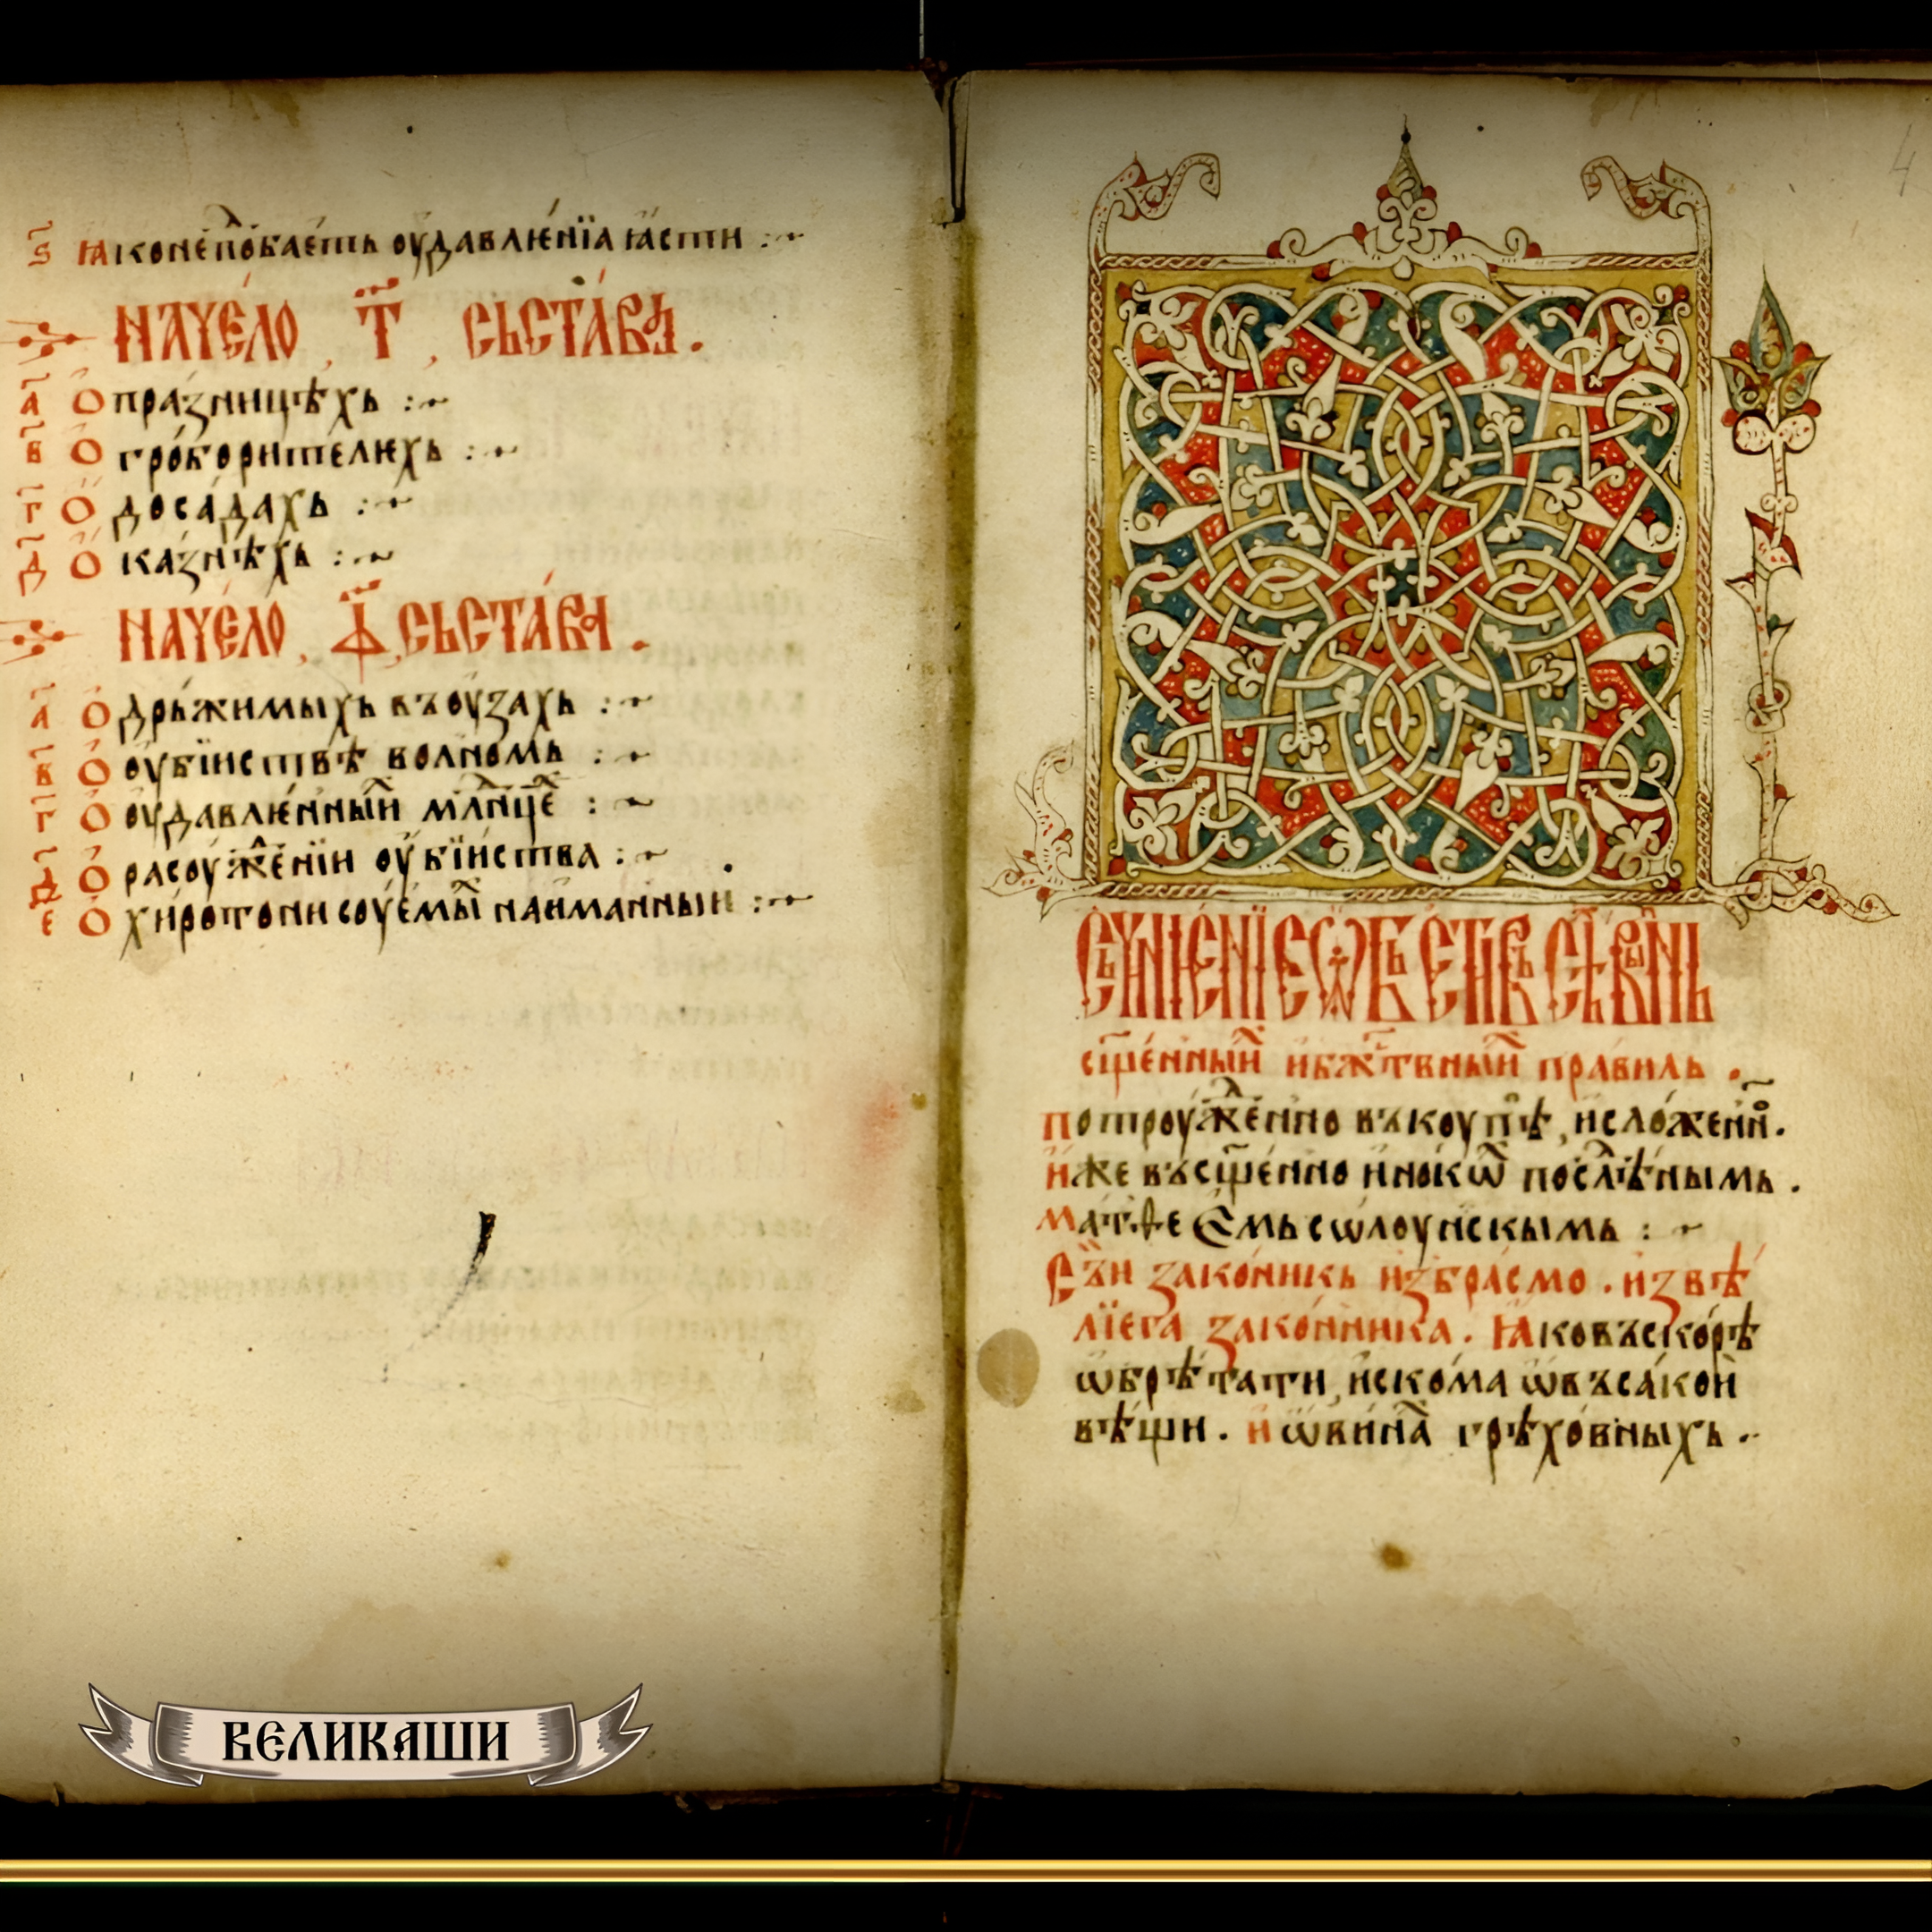 ѕ҃ ꙗко непо́баеть оу҆давле́нїа ꙗ҆сти :~
НАЧЕ́ЛО , Т҃ , СЬСТА́ВА .
а҃ О пра́зницѣхь :~
в҃ О гро́борителехь :~
г҃ О доса́дахь :~
д҃ О ка́знѣхь :~
НАЧЕ́ЛО , Ф҃ , СЬСТА́ВА .
а҃ О дрьжимыхь въ оу҆захь :~
в҃ О оу҆бїиствѣ волномь :~
г҃ О оу҆давле́нныи мл҃нце :~
д҃ О расоуже́нїи оу҆бїиства :~
е҃ О хи́ротонисоу́емыи наиманныи :~
СЬЧИНЕНЇЕ Ѿ ВЬСЕ
сщ҃е́нныи и҆ бж҃твныи пра́виль .
потроуже́нно въкоупѣ , и҆ сло́женно .
И҆же въ сщ҃е́нно и҆нокѡ послѣ́нымь .
Матѳе Емь сѡлоу́нскымь : ~
Съи зако́нникь и҆збра́смо . и҆з вѣ
лїега зако́нника . Ꙗко въскорѣ
ѡ҆брѣтати , и҆ско́ма ѡ҆ въса́кои
вѣщи . и҆ ѡ҆ви́на грѣхо́вныхь .
4
ВЕЛИКАШИ